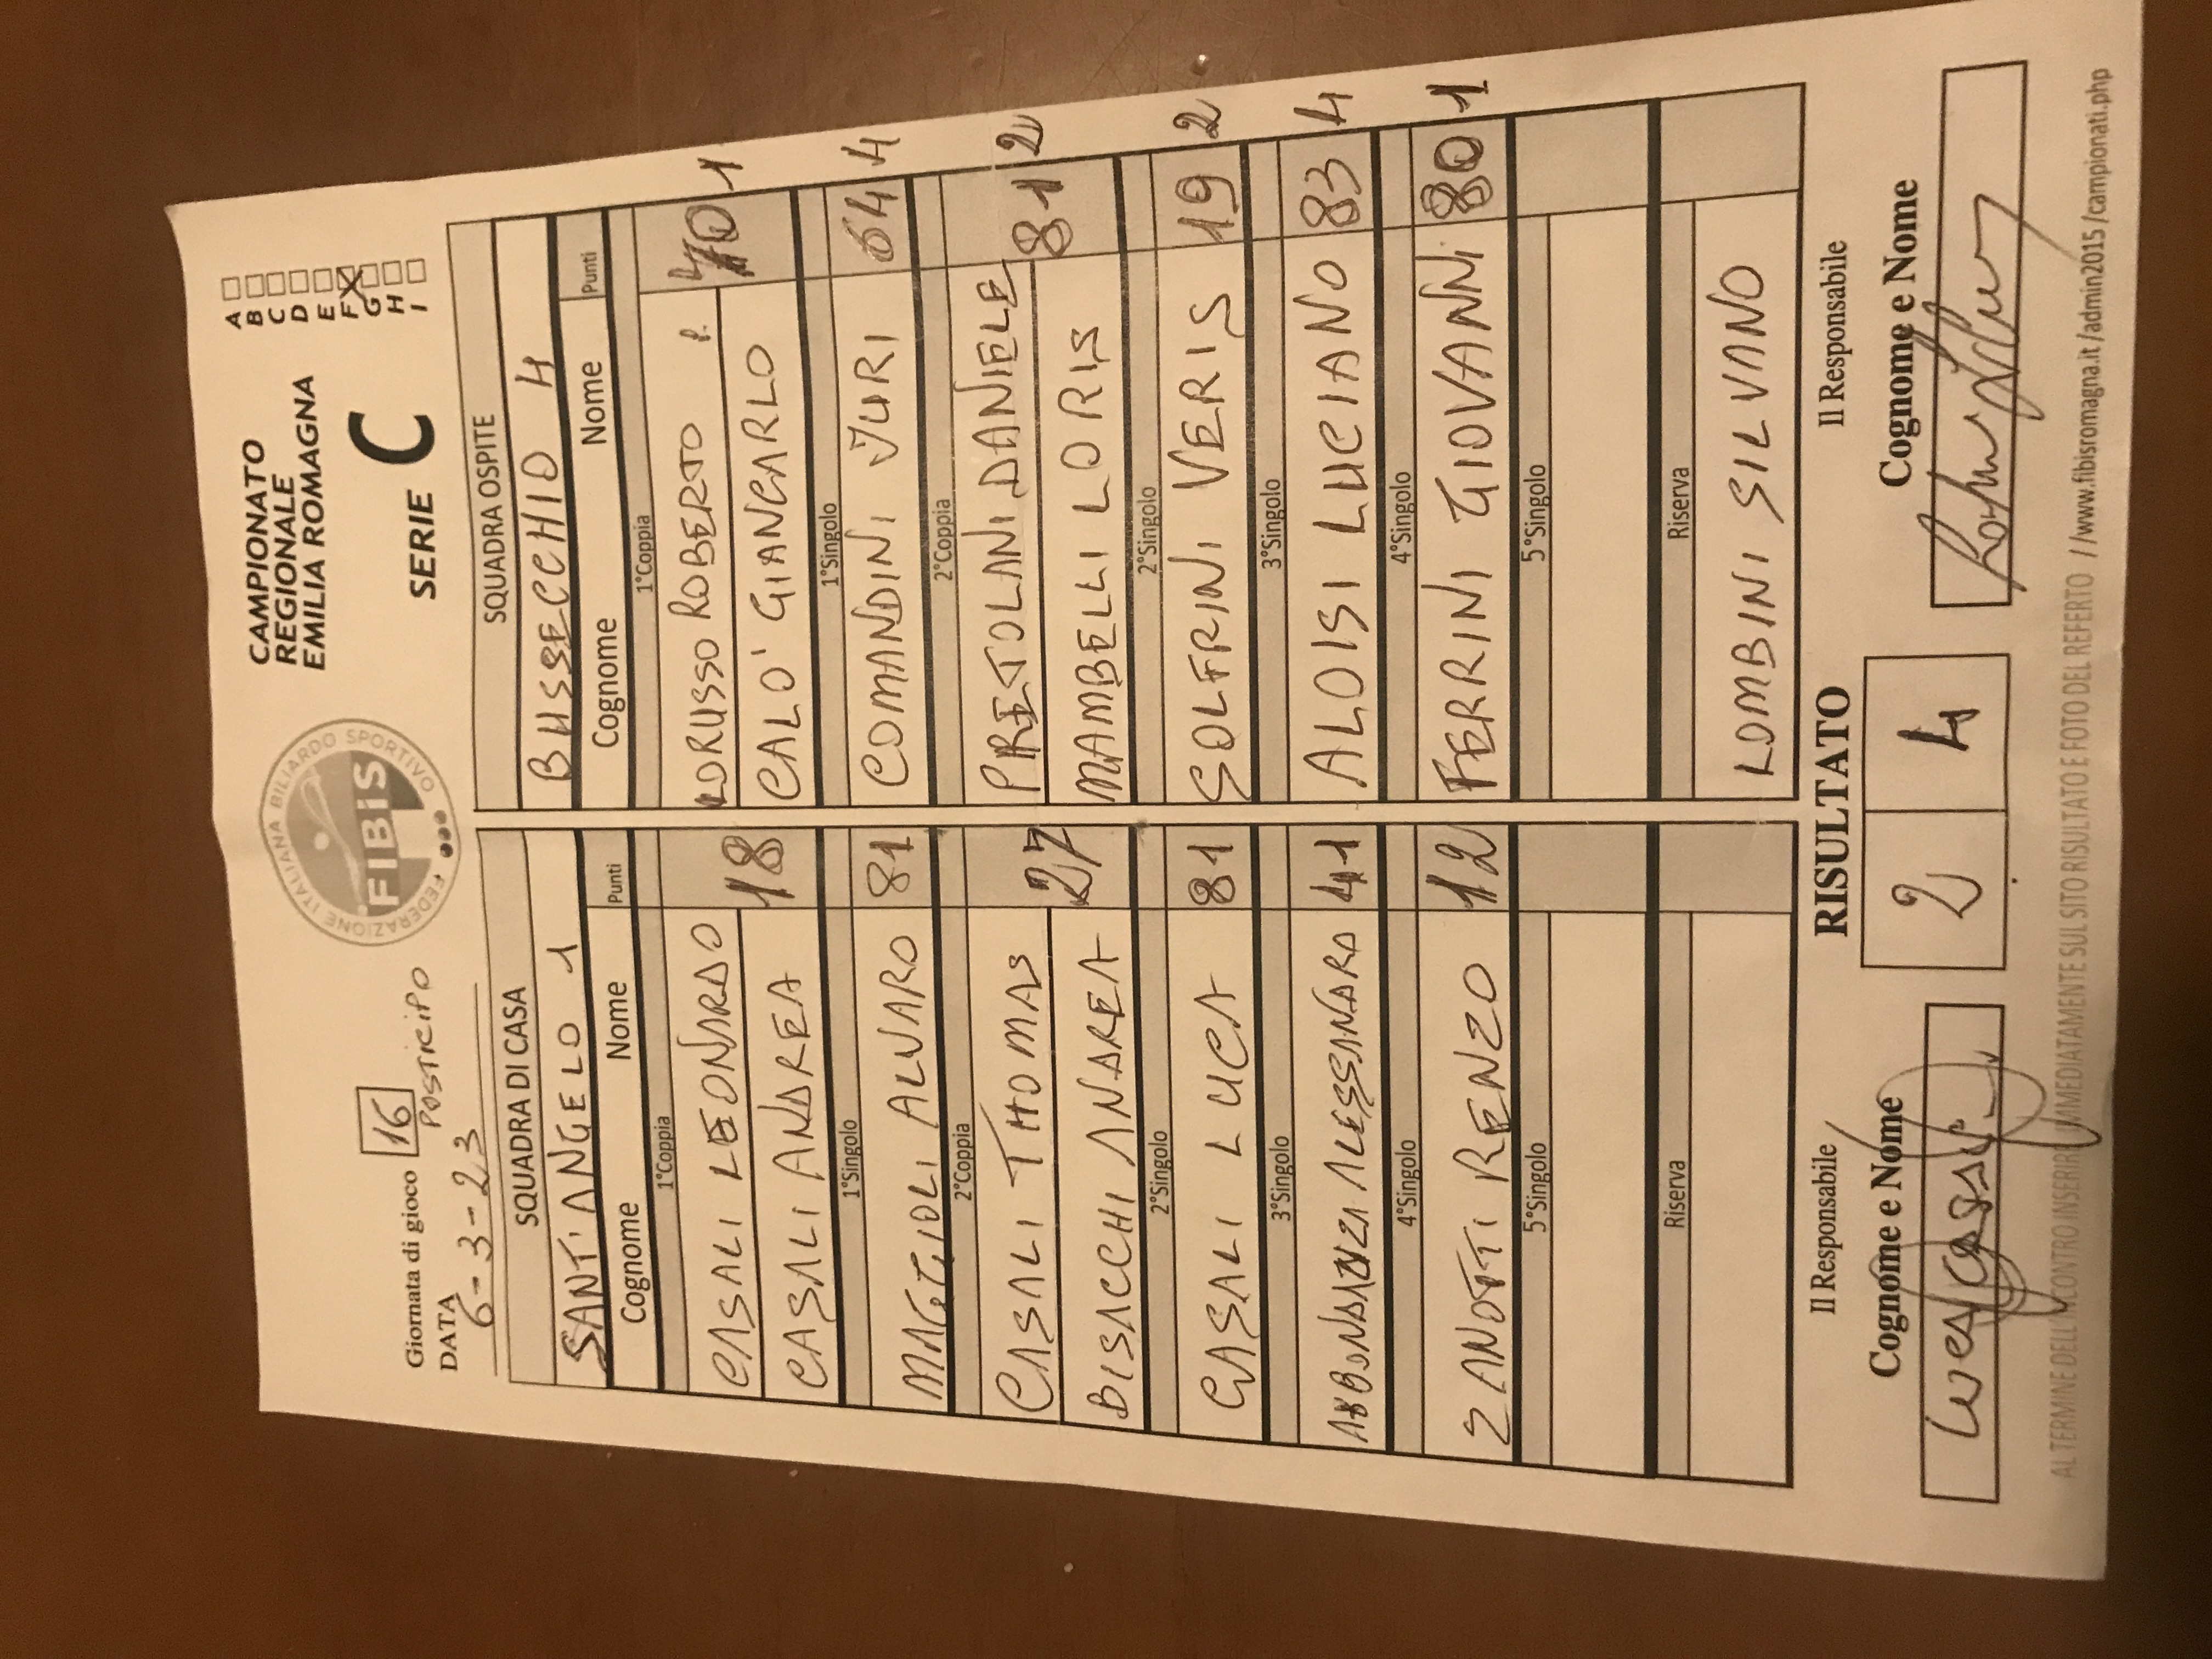 Giornata di gioco 16
POSTICIPO
DATA 6-3-23
FEDERAZIONE ITALIANA BILIARDO SPORTIVO
FIBiS
CAMPIONATO
REGIONALE
EMILIA ROMAGNA
SERIE C
A
B
C
D
E
F
G
H
I
SQUADRA DI CASA
SANT'ANGELO 1
Cognome Nome Punti
1°Coppia
CASALI LEONARDO
CASALI ANDREA 18
1°Singolo
MAGGIOLI ALVARO 81
2°Coppia
CASALI THOMAS
BISACCHI ANDREA 27
2°Singolo
CASALI LUCA 81
3°Singolo
ABBONDANZA ALESSANDRO 41
4°Singolo
ZANOTTI RENZO 12
5°Singolo
Riserva
SQUADRA OSPITE
BUSSECCHIO 4
Cognome Nome Punti
1°Coppia
LORUSSO ROBERTO
CALO' GIANCARLO 1
1°Singolo
COMANDINI JURI 64 4
2°Coppia
PRESTOLANI DANIELE
MAMBELLI LORIS 81 2
2°Singolo
SOLFRINI VERIS 19 2
3°Singolo
ALOISI LUCIANO 83 4
4°Singolo
FERRINI GIOVANNI 80 1
5°Singolo
Riserva
LOMBINI SILVANO
RISULTATO
2 4
Il Responsabile
Cognome e Nome
Il Responsabile
Cognome e Nome
AL TERMINE DELL'INCONTRO INSERIRE IMMEDIATAMENTE SUL SITO RISULTATO E FOTO DEL REFERTO //www.fibisromagna.it/admin2015/campionati.php